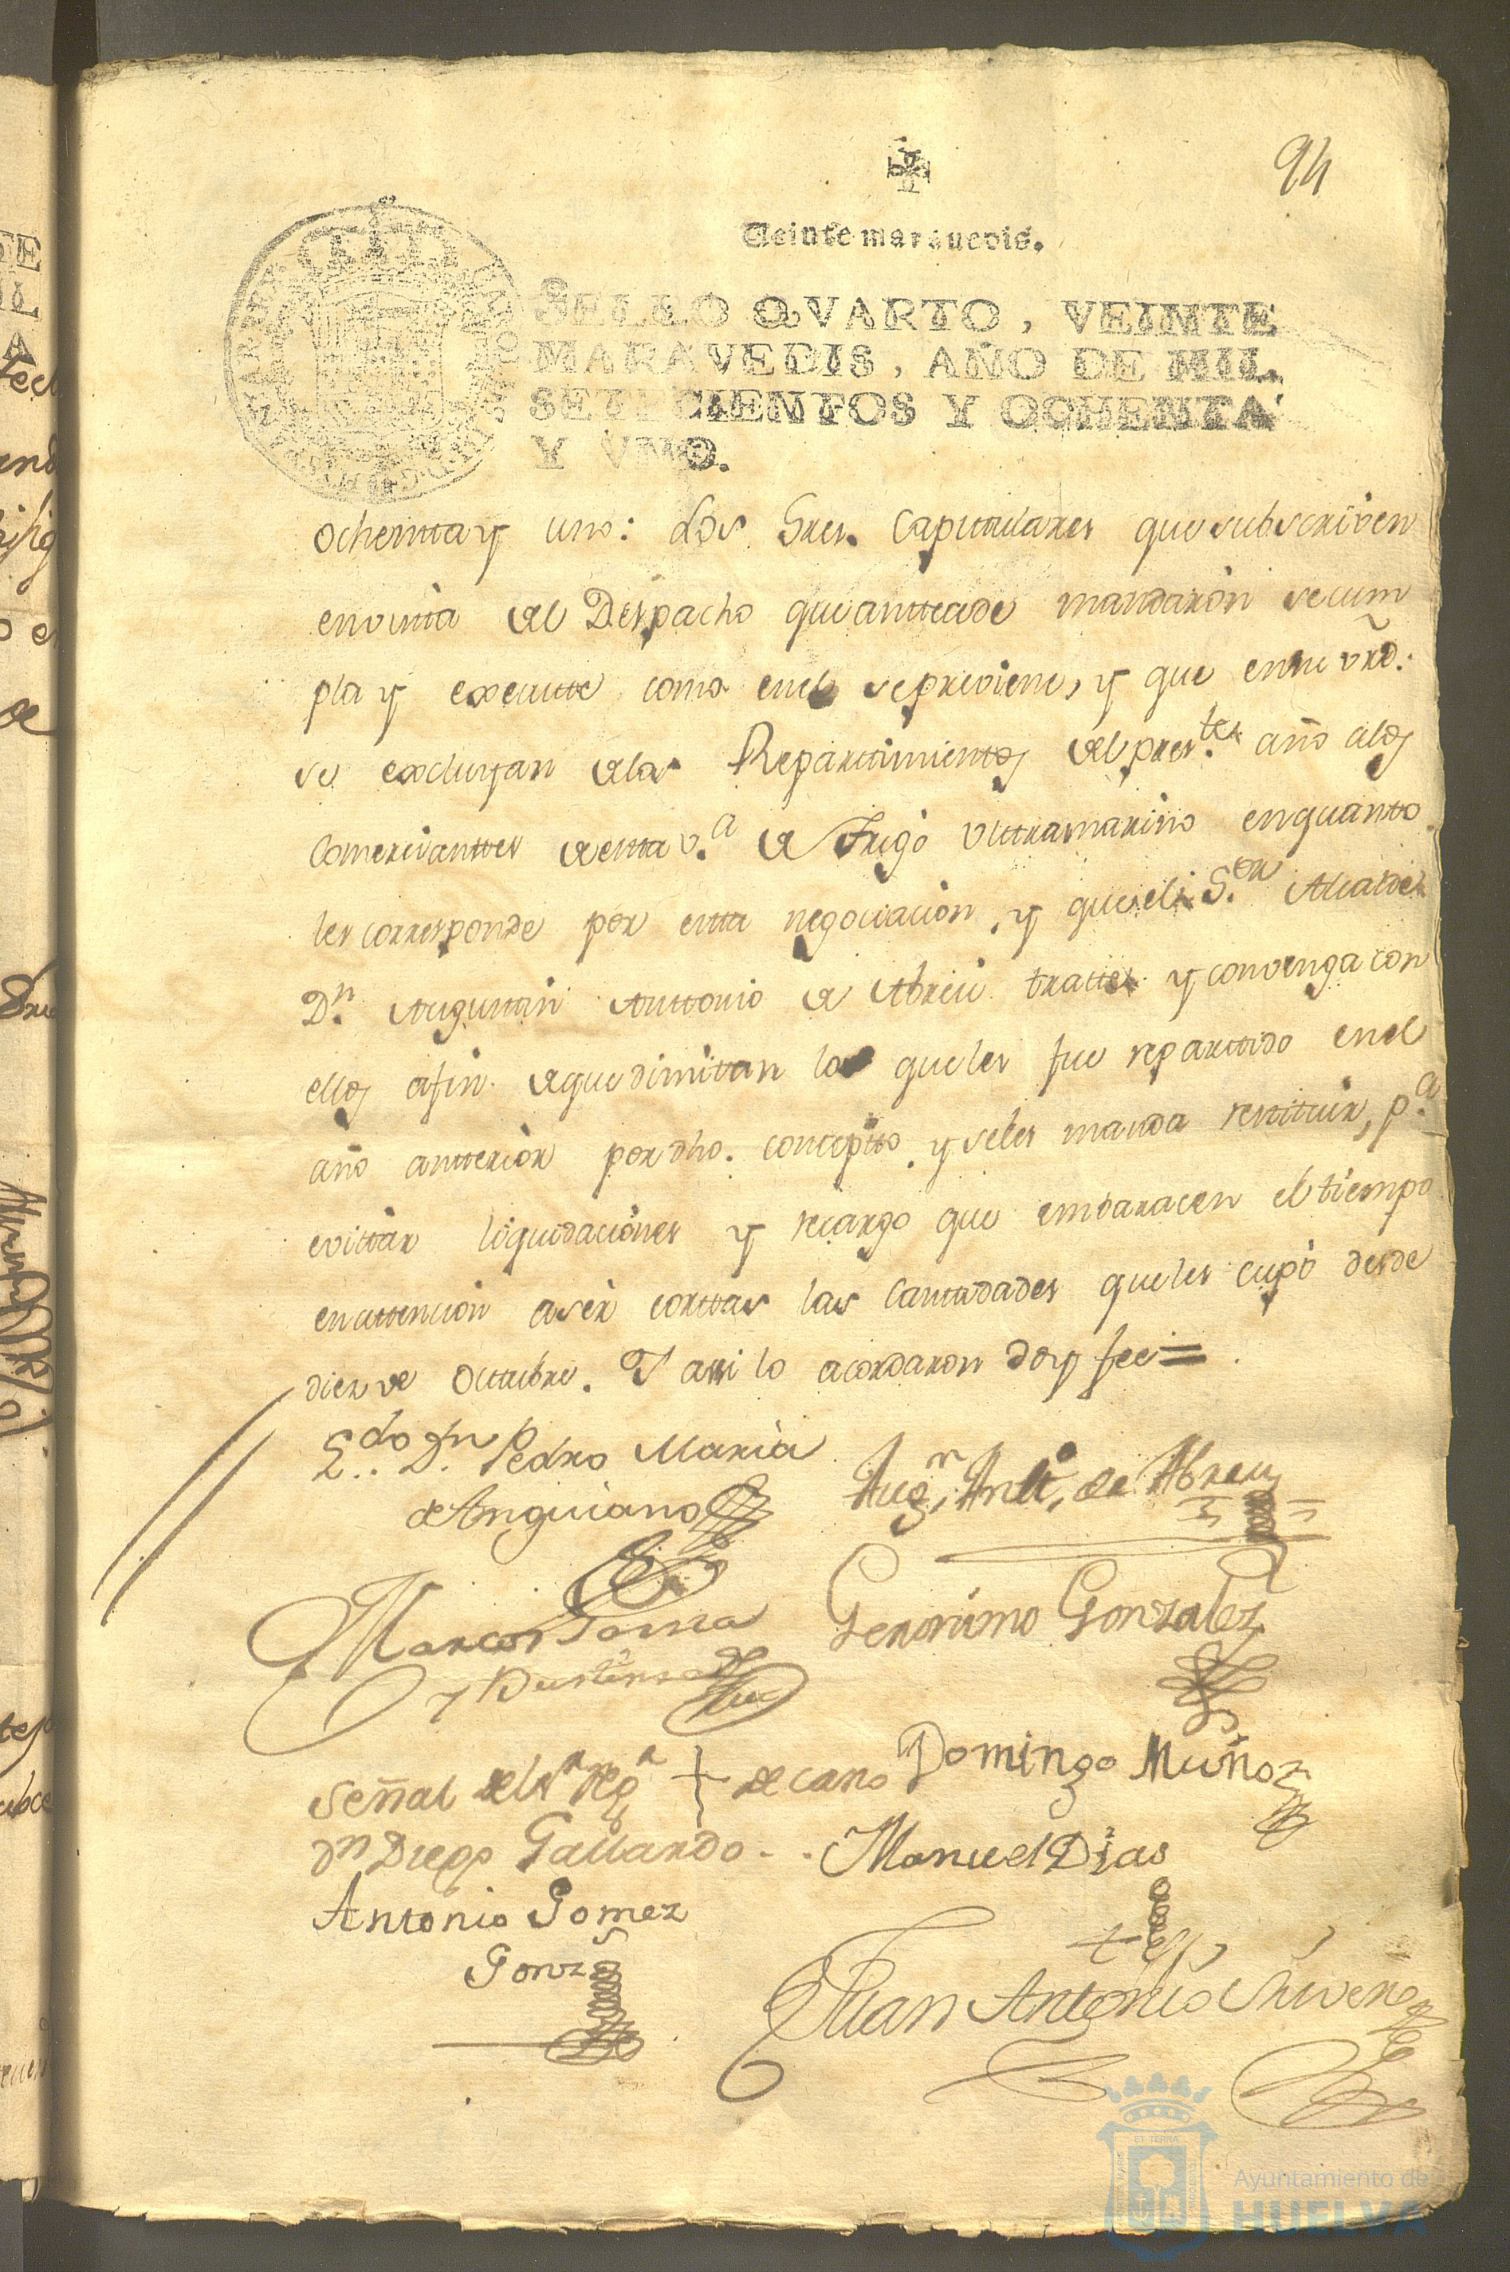 94
Veinte maravedis.
SELLO QVARTO, VEINTE
MARAVEDIS, AÑO DE MIL
SETECIENTOS Y OCHENTA
Y VNO.
ochentta y uno: Los Sres. Capitulares que subscriven
en vista del Despacho que antecede mandaron se cum
pla y execute como en el se previene, y que en su vrd.
se excluyan de los Repartimientos del pres.te año a los
Comerciantes de esta v.a de Trigo Ultramarino en quanto
les corresponde por esta negociacion, y que el S.or Alcalde
D.n Augustin Antonio de Abreu tratte y convenga con
ellos a fin de que dimitan lo que les fue repartido en el
año antterior por dho. conceptto y se les manda restituir, p.a
evittar liquidaciones y recargo que embaracen el tiempo
en attencion a ser corttas las Cantidades que les cupo desde
diez de Octubre. Y assi lo acordaron doy fee=
L.do D.n Pedro Maria
de Anguiano
Aug.n Ant.o de Abreu
Marcos
y
Geronimo Gonzalez
Señal del + decano
Domingo Muñoz
Dn Diego Gallardo
Manuel Dias
Antonio Gomez
Gonz
Juan Antonio
Ayuntamiento de
HUELVA